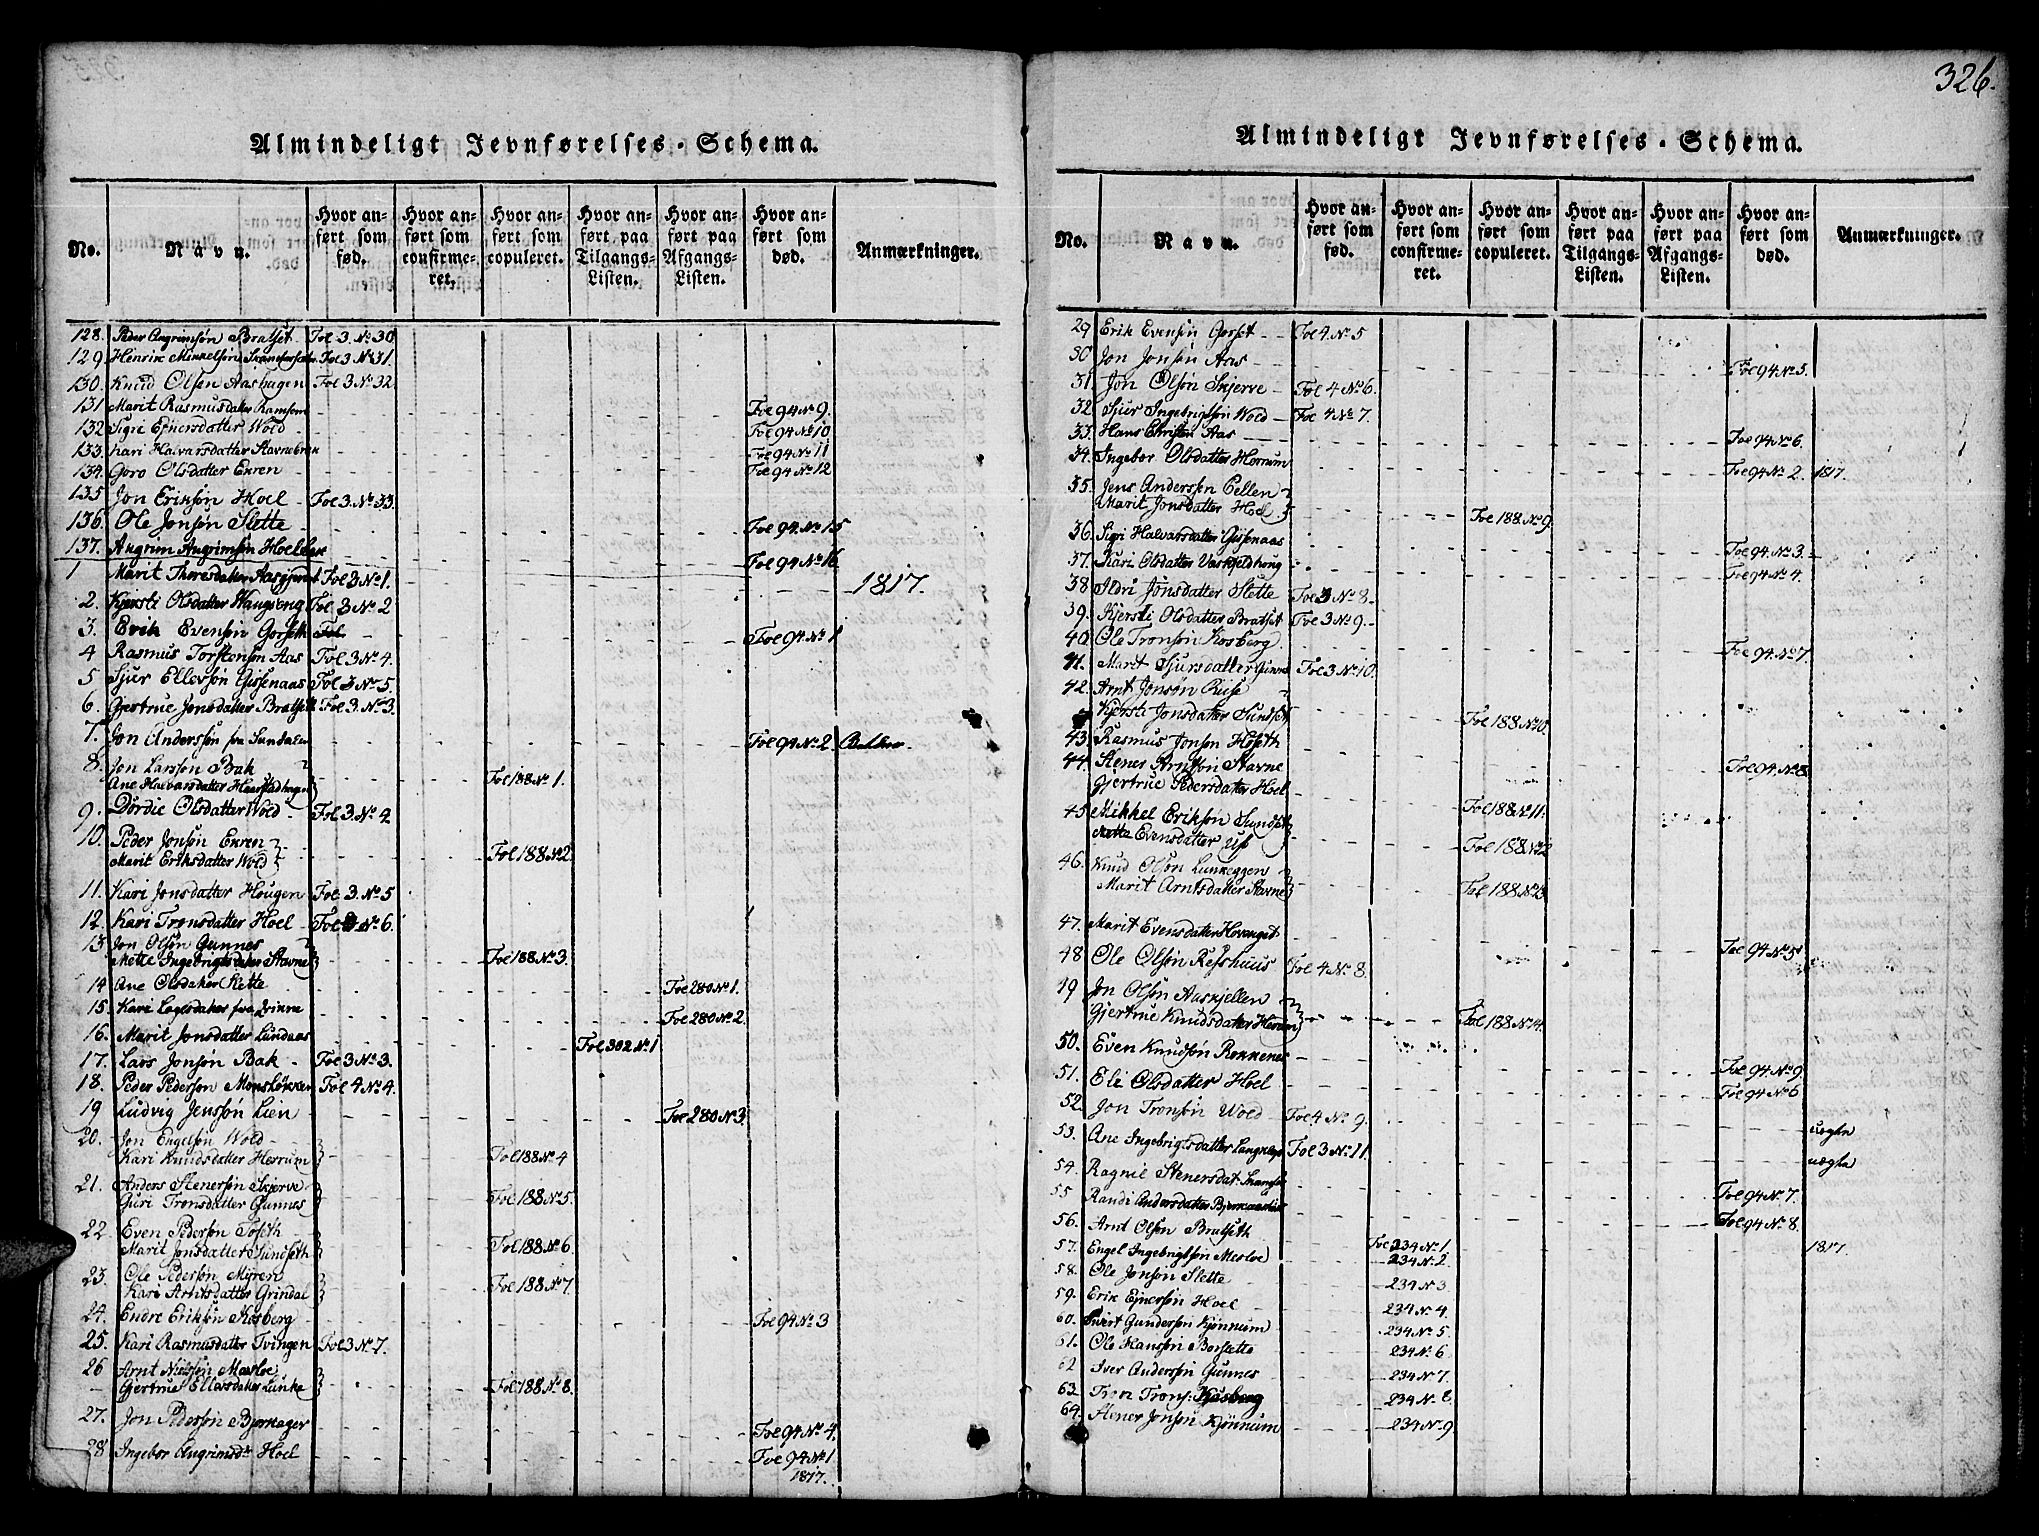 326.
Almindeligt Jevnførelses-Schema.
No. Navn. Hvor anført som fød. Hvor anført som confirmeret. Hvor anført som copuleret. Hvor anført paa Tilgangs-Listen. Hvor anført paa Afgangs-Listen. Hvor anført som død. Anmærkninger.
128. Peder Angrimsøn Bratset Fol 3 No 30
129. Henrik Mikkelsøn Fol 3 No 31.
130. Knud Olsøn Aashagen Fol 3 No 32
131 Marit Rasmusdatter Ramsem Fol 94 No 9.
132 Sigri Ejnersdatter Wold Fol 94 No 10
133. Kari Halvarsdatter Stavnebren Fol 94 No 11
134. Goro Olsdatter Enren Fol 94 No 12
135 Jon Eriksøn Hoel Fol 3. No 33.
136. Ole Jonsøn Slette Fol 94. No 15
137. Angrim Angrimsøn Fol 94 No 16
1 Marit Thoresdatter Fol 3 No 1. 1817.
2. Kjersti Olsdatter Haugseng Fol 3 No 2
3. Erik Evensøn Gorseth Fol Fol 94 No 1
4 Rasmus Torstensøn Aas Fol 3 No 4.
5 Sjur Ellevsøn Gissenaas Fol 3 No 5.
6. Gjertrue Jonsdatter Bratset Fol 3. No 3.
7. Jon Anderssøn fra Sundalen Fol 94 No 2
8. Jon Larssøn Bak
Ane Halvarsdatter Fol 188 No 1.
9. Dordie Olsdatter Wold Fol 3. No 4
10. Peder Jonsøn Enren
Marit Eriksdatter Wold Fol 188 No 2
11. Kari Jonsdatter Hougen Fol 3. No 5
12. Kari Tronsdatter Hoel Fol 3 No 6.
13 Jon Olsøn Gunnes
Mette Ingebrigtsdatter Stavne Fol 188 No 3.
14 Ane Olsdatter Slette Fol 280 No 1.
15. Kari Lagesdatter fra Qvikne Fol 280 No 2.
16. Marit Jonsdatter Lundaas Fol 302 No 1
17. Lars Jonsøn Bak Fol 3 No 3.
18. Peder Pedersøn Monsløkken Fol 4 No 4.
19 Ludvig Jenssøn Lien Fol 280 No 3.
20. Jon Engelsøn Wold
Kari Knudsdatter Herrum Fol 188 No 4
21. Anders Stenersøn Skjerve
Guri Tronsdatter Gunnes Fol 188 No 5.
22 Even Pedersøn Toseth
Marit Jonsdatter Sundseth Fol 188 No 6.
23. Ole Pedersøn Myren
Kari Arntsdatter Grindal Fol 188 No 7.
24. Endre Eriksøn Kosberg Fol 94 No 3
25. Kari Rasmusdatter Tvingen Fol 3 No 7.
26 Arnt Nielsøn Mesloe
Gjertrue Ellasdatter Lunke Fol 188 No 8.
27. Jon Pedersøn Bjerkager Fol 94 No 4.
28 Ingebor Angrimsdr Hoel Fol 94 No 1
1817.
Almindeligt Jevnførelses-Schema.
No. Navn. Hvor anført som fød. Hvor anført som confirmeret. Hvor anført som copuleret. Hvor anført paa Tilgangs-Listen. Hvor anført paa Afgangs-Listen. Hvor anført som død. Anmærkninger.
29 Erik Evensøn Gorset Fol 4 No 5
30 Jon Jonsøn Aas Fol 94 No 5.
31. Jon Olsøn Skjerve Fol 4 No 6.
32 Sjur Ingebrigtsøn Wold Fol 4 No 7.
33. Hans Christen Aas Fol 94 No 6.
34. Ingebor Olsdatter Herrum Fol 94 No 2. 1817.
35. Jens Anderssøn Pellen
Marit Jonsdatter Hoel Fol 188 No 9
36. Sigri Halvarsdatter Gissenaas Fol 94. No 3.
37. Kari Olsdatter Fol 94 No 4.
38 Ildri Jonsdatter Slette Fol 3 No 8.
39. Kjersti Olsdatter Bratset Fol 3 No 9.
40. Ole Tronsøn Kosberg Fol 94 No 7.
41. Marit Sjursdatter Gunnes Fol 3 No 10.
42. Arnt Jonsøn Riise
Kjersti Jonsdatter Sundset Fol 188 No 10.
43. Rasmus Jonsøn Hoseth Fol 94 No 8
44. Stener Arntsøn Stavne
Gjertrue Pedersdatter Hoel Fol 188 No 11.
45. Mikkel Eriksøn Sundset
Mette Evensdatter Uf Fol 188 No 12
46. Knud Olsøn Lunkeggen
Marit Arntsdatter Stavne Fol 188 No 13.
47. Marit Evensdatter Hovenget Fol 94 No 5
48 Ole Olsøn Resshuus Fol 4 No 8.
49 Jon Olsøn Aaskjellen
Gjertrue Knudsdatter Herrum Fol 188 No 14.
50. Even Knudsøn Ronnenes Fol 94 No 9
51. Eli Olsdatter Hoel Fol 94 No 6
52 Jon Tronsøn Wold Fol 4 No 9.
53. Ane Ingebrigtsdatter Fol 3 No 11. uegte
54. Ragnil Stenersdat. uegte Fol 94 No 7.
55 Randi Andersdatter Fol 94 No 8.
56. Arnt Olsøn Bratseth Fol 234 No 1 1817.
57. Engel Ingebrigtsøn Mesloe 234 No 2.
58. Ole Jonsøn Slette 234 No 3
59. Erik Ejnersøn Hoel 234 No 4.
60. Sivert Gundersøn Kjønnum 234 No 5.
61. Ole Hanssøn Borsette 234 No 6
62 Iver Anderssøn Gunnes 234 No 7.
63. Tron Trons: Kosberg 234 No 8
64. Stener Jonsøn Kjønnum 234 No 9